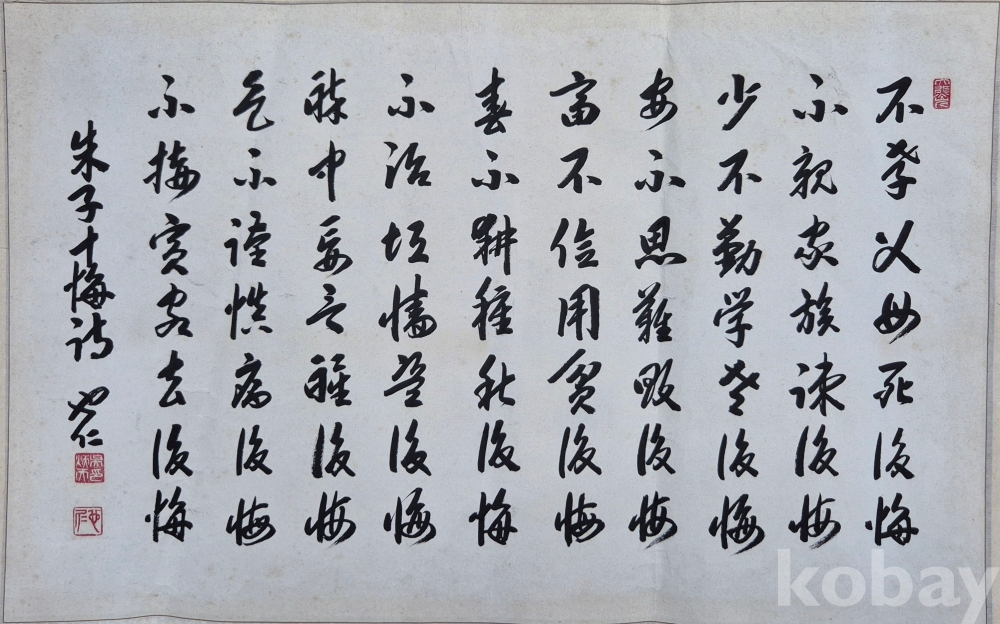 不孝父母死後悔
不親家族疎後悔
少不勤学老後悔
安不思難敗後悔
富不儉用貧後悔
春不耕種秋後悔
不治垣墻盜後悔
醉中妄言醒後悔
色不謹慎病後悔
不接賓客去後悔
朱子十悔詩 仁
kobay